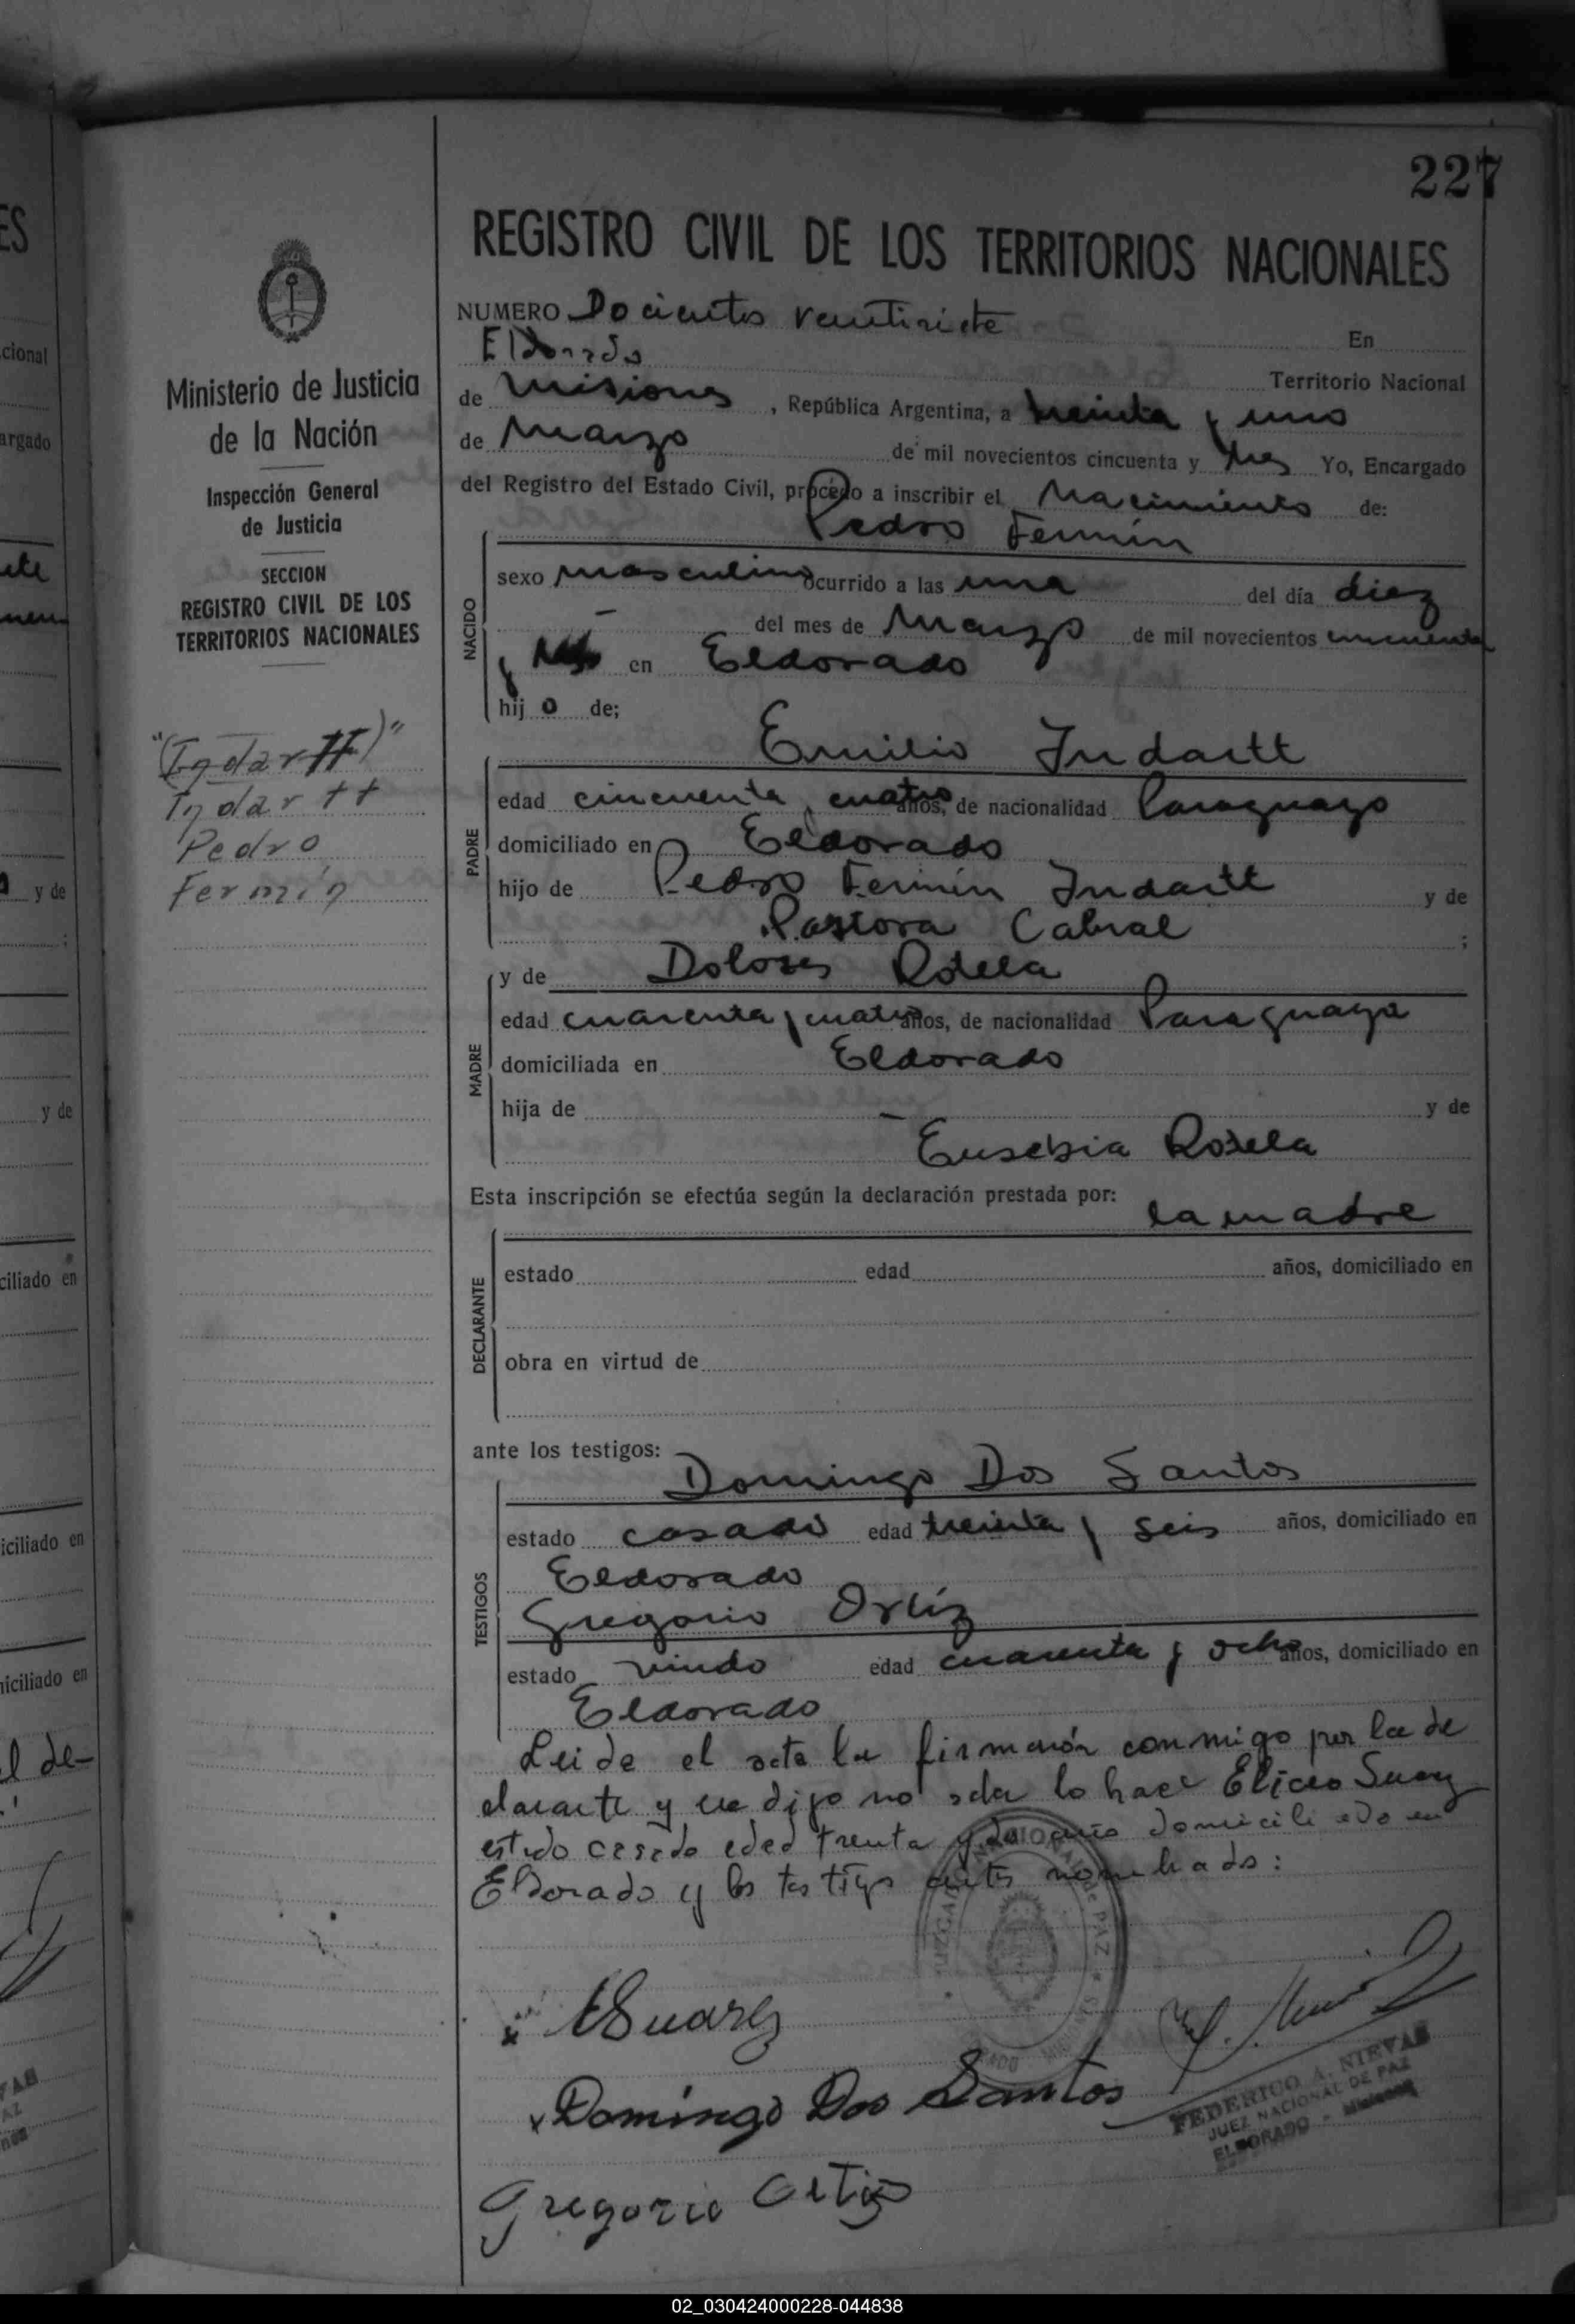 227
REGISTRO CIVIL DE LOS TERRITORIOS NACIONALES
Ministerio de Justicia
de la Nación
Inspección General
de Justicia
SECCION
REGISTRO CIVIL DE LOS
TERRITORIOS NACIONALES
"(Indartt)"
Indartt
Pedro
Fermín
NUMERO Docientos veintisiete En
Eldorado Territorio Nacional
de Misiones, República Argentina, a treinta y uno
de Marzo de mil novecientos cincuenta y tres Yo, Encargado
del Registro del Estado Civil, procedo a inscribir el Nacimiento de:
Pedro Fermín
NACIDO
sexo masculino ocurrido a las una del día diez
– del mes de Marzo de mil novecientos cincuenta
y en Eldorado
hijo de;
Emilio Indartt
PADRE
edad cincuenta y cuatro años, de nacionalidad Paraguayo
domiciliado en Eldorado
hijo de Pedro Fermín Indartt y de
Pastora Cabral ;
y de Dolores Rotela
MADRE
edad cuarenta y cuatro años, de nacionalidad Paraguaya
domiciliada en Eldorado
hija de – y de
Eusebia Rotela
Esta inscripción se efectúa según la declaración prestada por:
la madre
DECLARANTE
estado edad años, domiciliado en
obra en virtud de
ante los testigos:
Domingo Dos Santos
TESTIGOS
estado casado edad treinta y seis años, domiciliado en
Eldorado
Gregorio Ortíz
estado viudo edad cuarenta y ocho años, domiciliado en
Eldorado
Leida el acta la firmarón conmigo por la de
clarante y que dijo no sda lo hace Eliceo Suarez
estado casado edad trenta y domiciliado en
Eldorado y los testigo antes nombrado:
ESuarez
Domingo Dos Santos
Gregorio Ortiz
FEDERICO A. NIEVAS
JUEZ NACIONAL DE PAZ
ELDORADO - Misiones
02_030424000228-044838